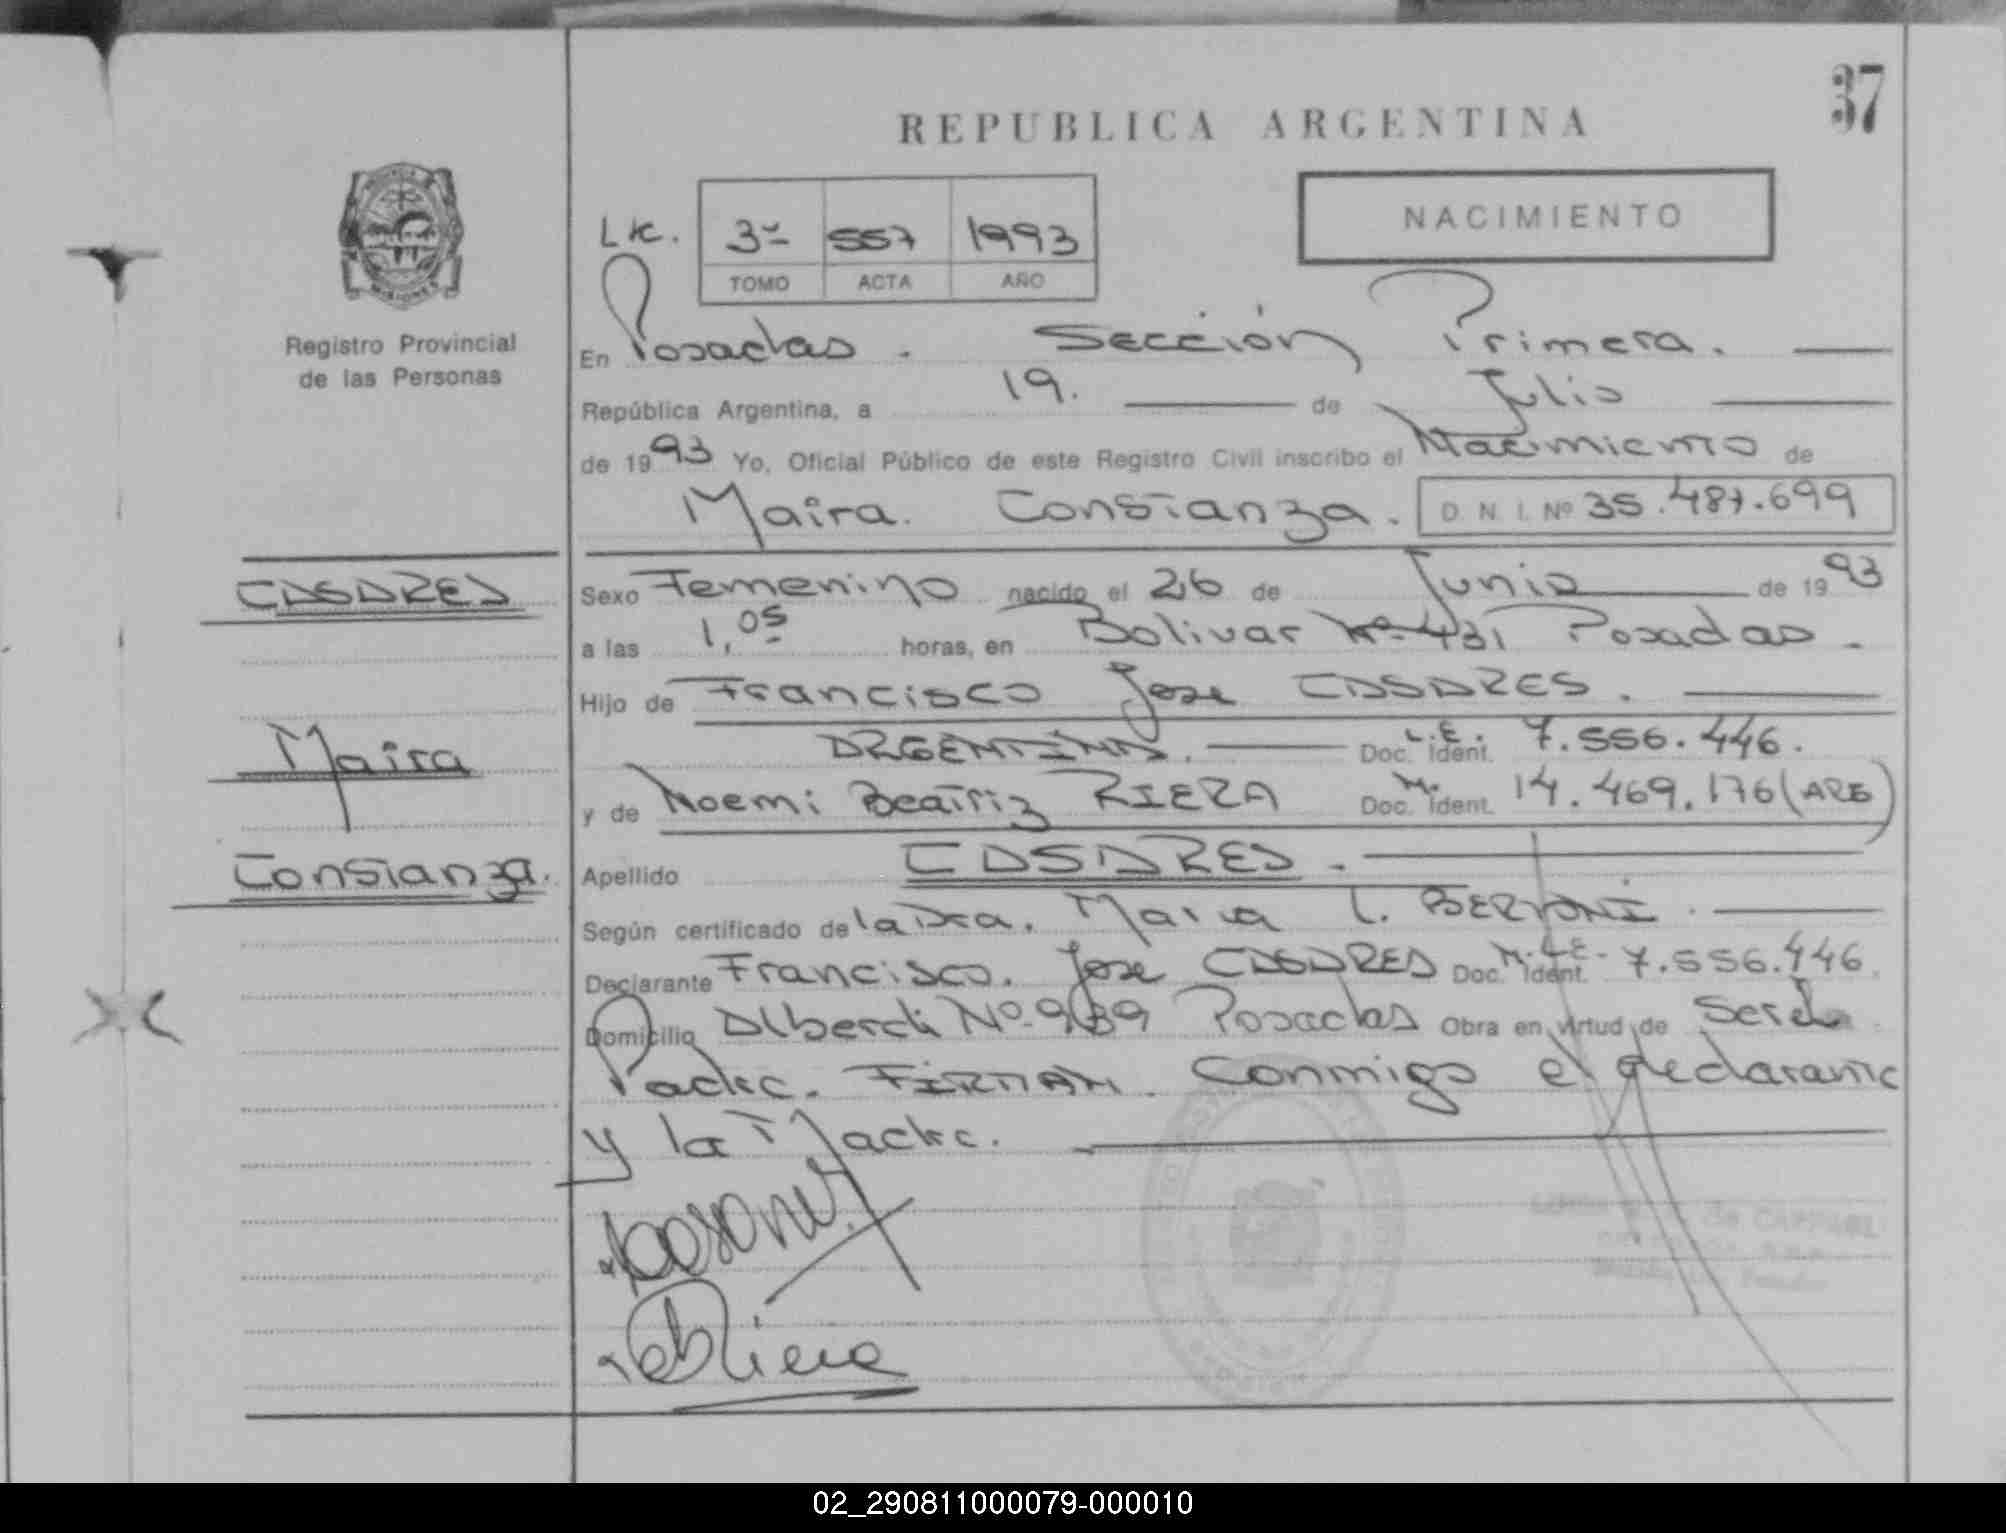 37
REPUBLICA ARGENTINA
NACIMIENTO
Lic. 3º 557 1993
TOMO ACTA AÑO
MISIONES
Registro Provincial
de las Personas
En Posadas. Sección Primera.
República Argentina, a 19. de Julio
de 1993 Yo, Oficial Público de este Registro Civil inscribo el Nacimiento de
Maira. Constanza. D. N. I. Nº 35.487.699
CASARES
Sexo Femenino nacido el 26 de Junio de 1993
a las 1,05 horas, en Bolivar Nº 431 Posadas.
Hijo de Francisco Jose CASARES.
Maira
ARGENTINA. Doc. Ident. L.E. 7.556.446.
y de Noemi Beatriz RIERA Doc. Ident. 14.469.176 (ARG)
Constanza.
Apellido CASARES.
Según certificado de la Dra. Maria L. BERTONI.
Declarante Francisco. Jose CASARES Doc. Ident. M.L.E. 7.556.446.
Domicilio Alberdi Nº 989 Posadas Obra en virtud de Ser el
Padre. FIRMAN. Conmigo el declarante
y la Madre.
02_290811000079-000010